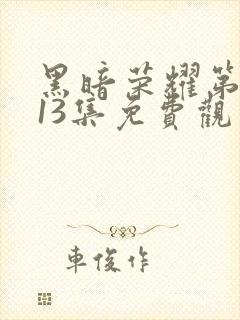 黑暗荣耀第
13集免費觀
車俊作